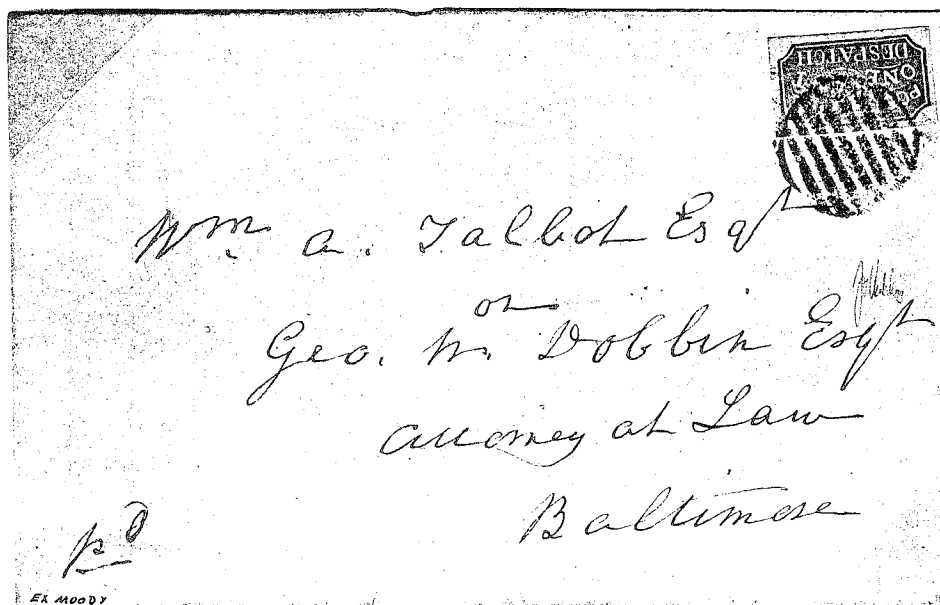 PO
ONE
DESPATCH
Wm. A. Talbot Esqr
or
Geo. W. Dobbin Esqr
Attorney at Law
Baltimore
pd
EX MOODY